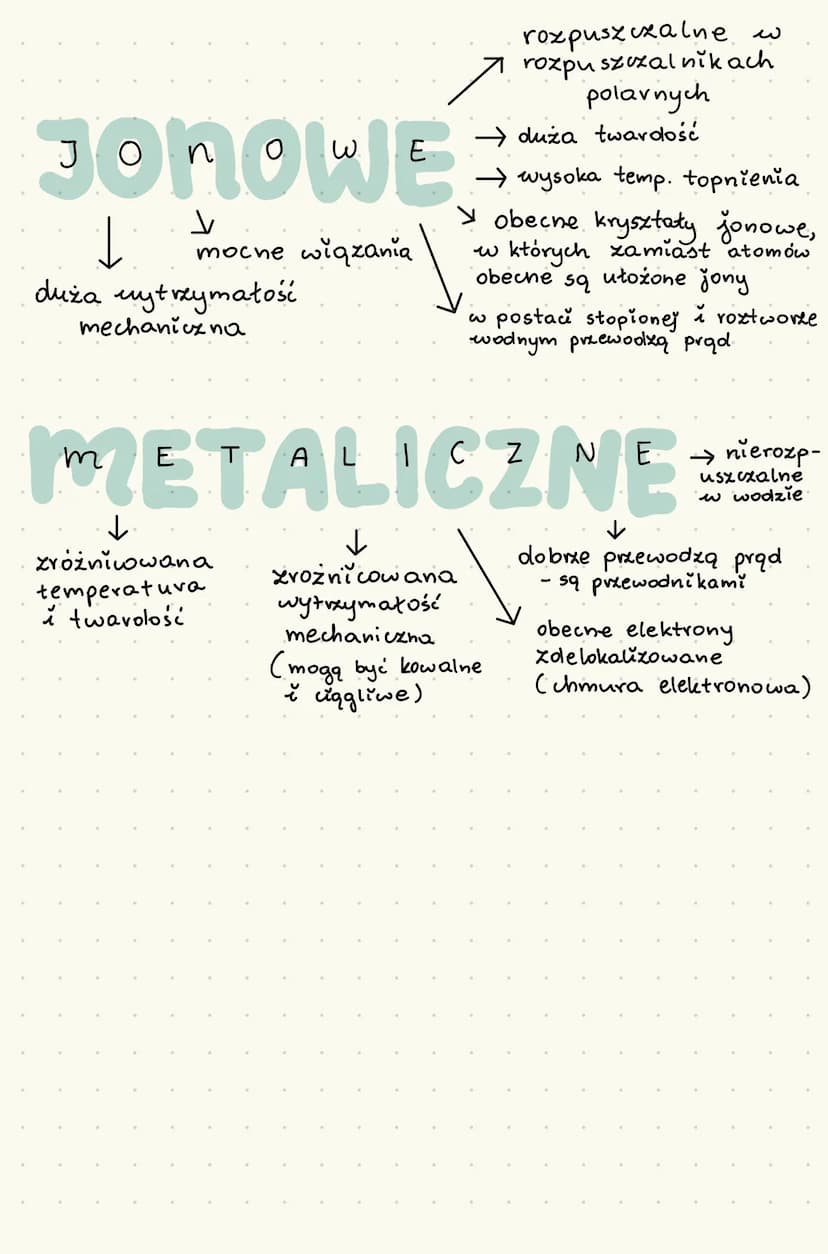 JONOWE
rozpuszczalne w
rozpuszczalnikach
polarnych
→ duża twardość
→ wysoka temp. topnienia
obecne kryształy jonowe,
w których zamiast atomów
obecne są ułożone jony
w postaci stopionej i roztworze
wodnym przewodzą prąd
mocne wiązania
duża wytrzymałość
mechaniczna
METALICZNE
→ nierozp-
uszczalne
w wodzie
zróżnicowana
temperatura
i twardość
zrożnicowana
wytrzymałość
mechaniczna
(mogą być kowalne
i ciągliwe)
dobrze przewodzą prąd
- są przewodnikami
obecne elektrony
zdelokalizowane
(chmura elektronowa)